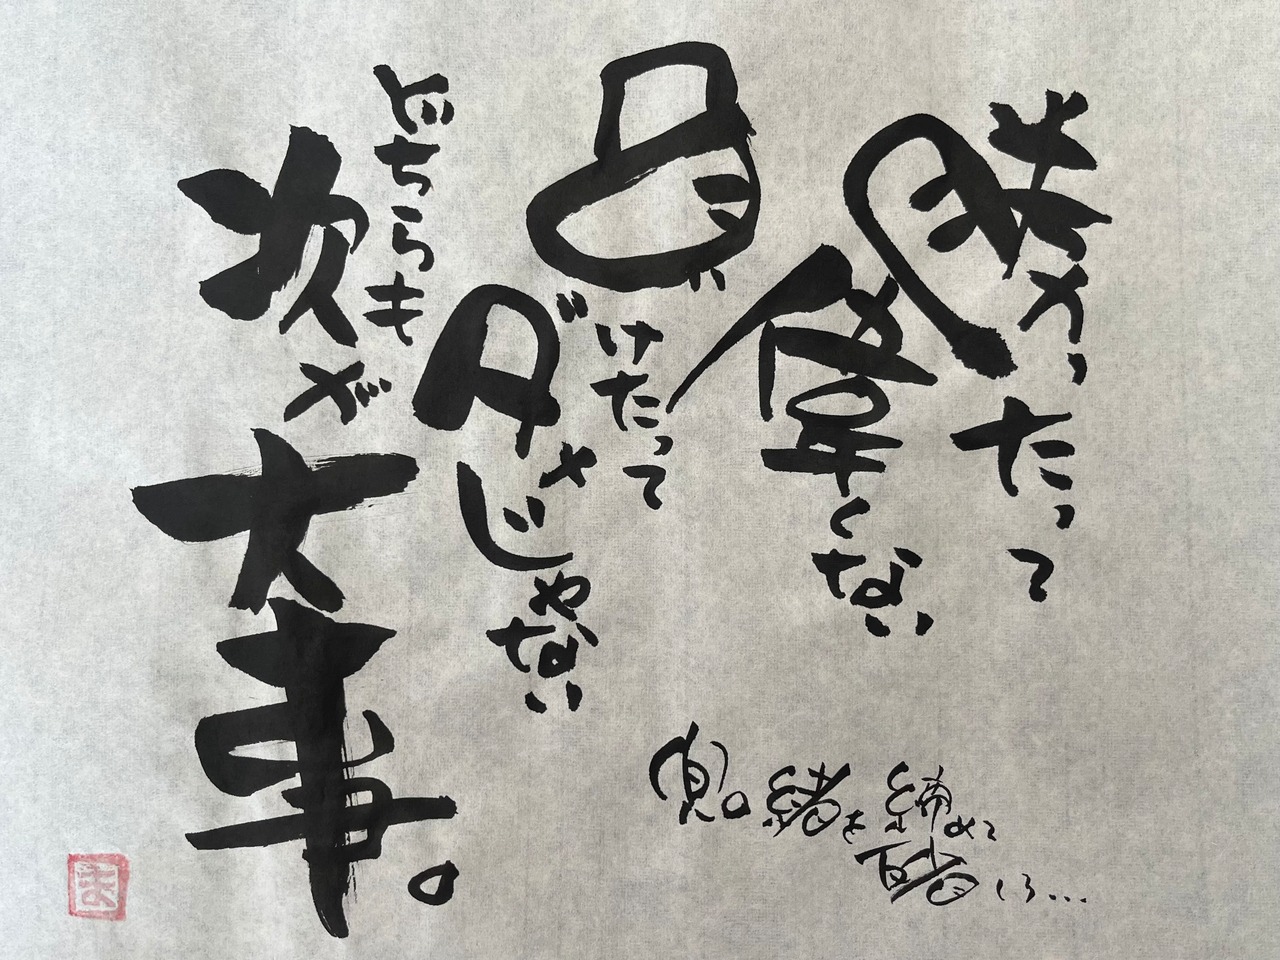 勝ったって
偉くない
負けたって
ダメじゃない
どちらも
次が大事。
兜の緒を締めて
反省しろ…
ま